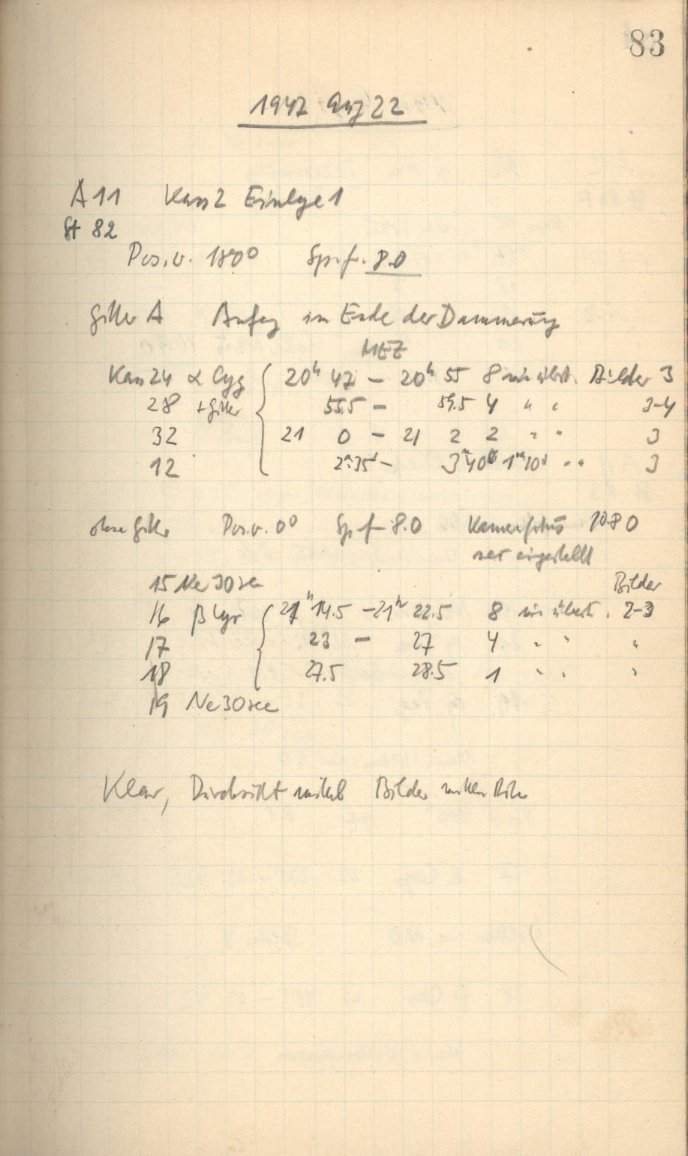 83
1947 Aug 22
A 11 Kass 2 Einlage 1
St 82
Pos. w. 180° Sp. f. 8.0
Gitter A Anfang im Ende der Dämmerung
MEZ
Kass 24 α Cyg 20h 47 – 20h 55 8 min übst. Bilder 3
28 + Gitter 55.5 – 59.5 4 " " 3–4
32 21 0 – 21 2 2 " " 3
12 2m 35s – 3m 40s 1m 10s " " 3
ohne Gitter Pos. w. 0° Sp f 8.0 8.0
neu eingestellt
15 Ne 30 sec Bilder
16 β Lyr 21h 14.5 – 21h 22.5 8 min übst. 2–3
17 23 – 27 4 " " "
18 27.5 28.5 1 " " "
19 Ne 30 sec
Klar, Durchsicht mittel Bilder